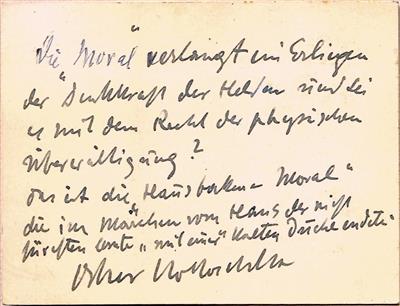 "Die Moral" verlangt ein Erliegen
der "Denkkraft der Helden und sei
es mit dem Recht der physischen
Überwältigung?
Das ist die "Hausbackene Moral"
die im Märchen vom Hans der nicht
fürchten lernte "mit einer" kalten Dusche endete.
Oskar Kokoschka